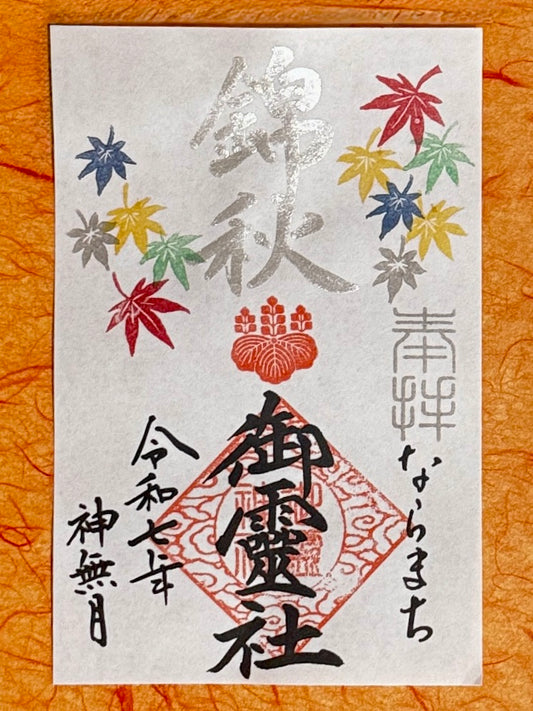 錦秋
奉拝
ならまち
御靈社
令和七年
神無月